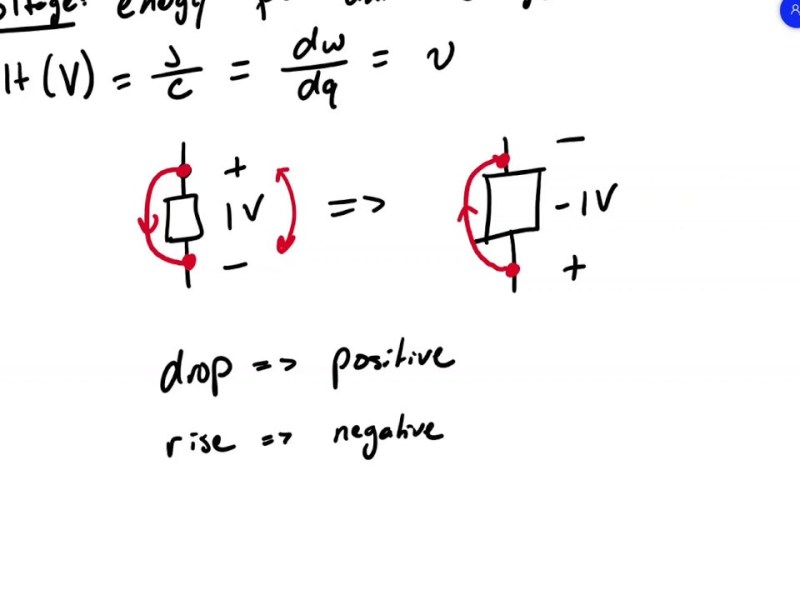 energy
(V) = J/C = dw/dq = v
+ −
1V => -1V
− +
drop => positive
rise => negative